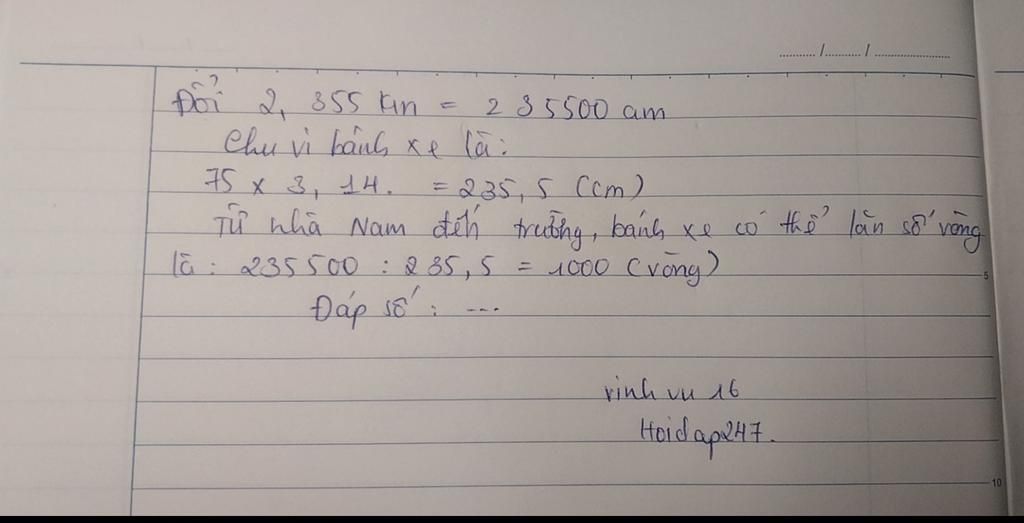 ............/........../......................
Đổi 2, 355 km = 235500 cm
Chu vi bánh xe là:
75 x 3, 14. = 235, 5 (cm)
Từ nhà Nam đến trường, bánh xe có thể lăn số vòng
là: 235500 : 235, 5 = 1000 (vòng)
5
Đáp số: ...
vinh vu 16
Hoidap247.
10